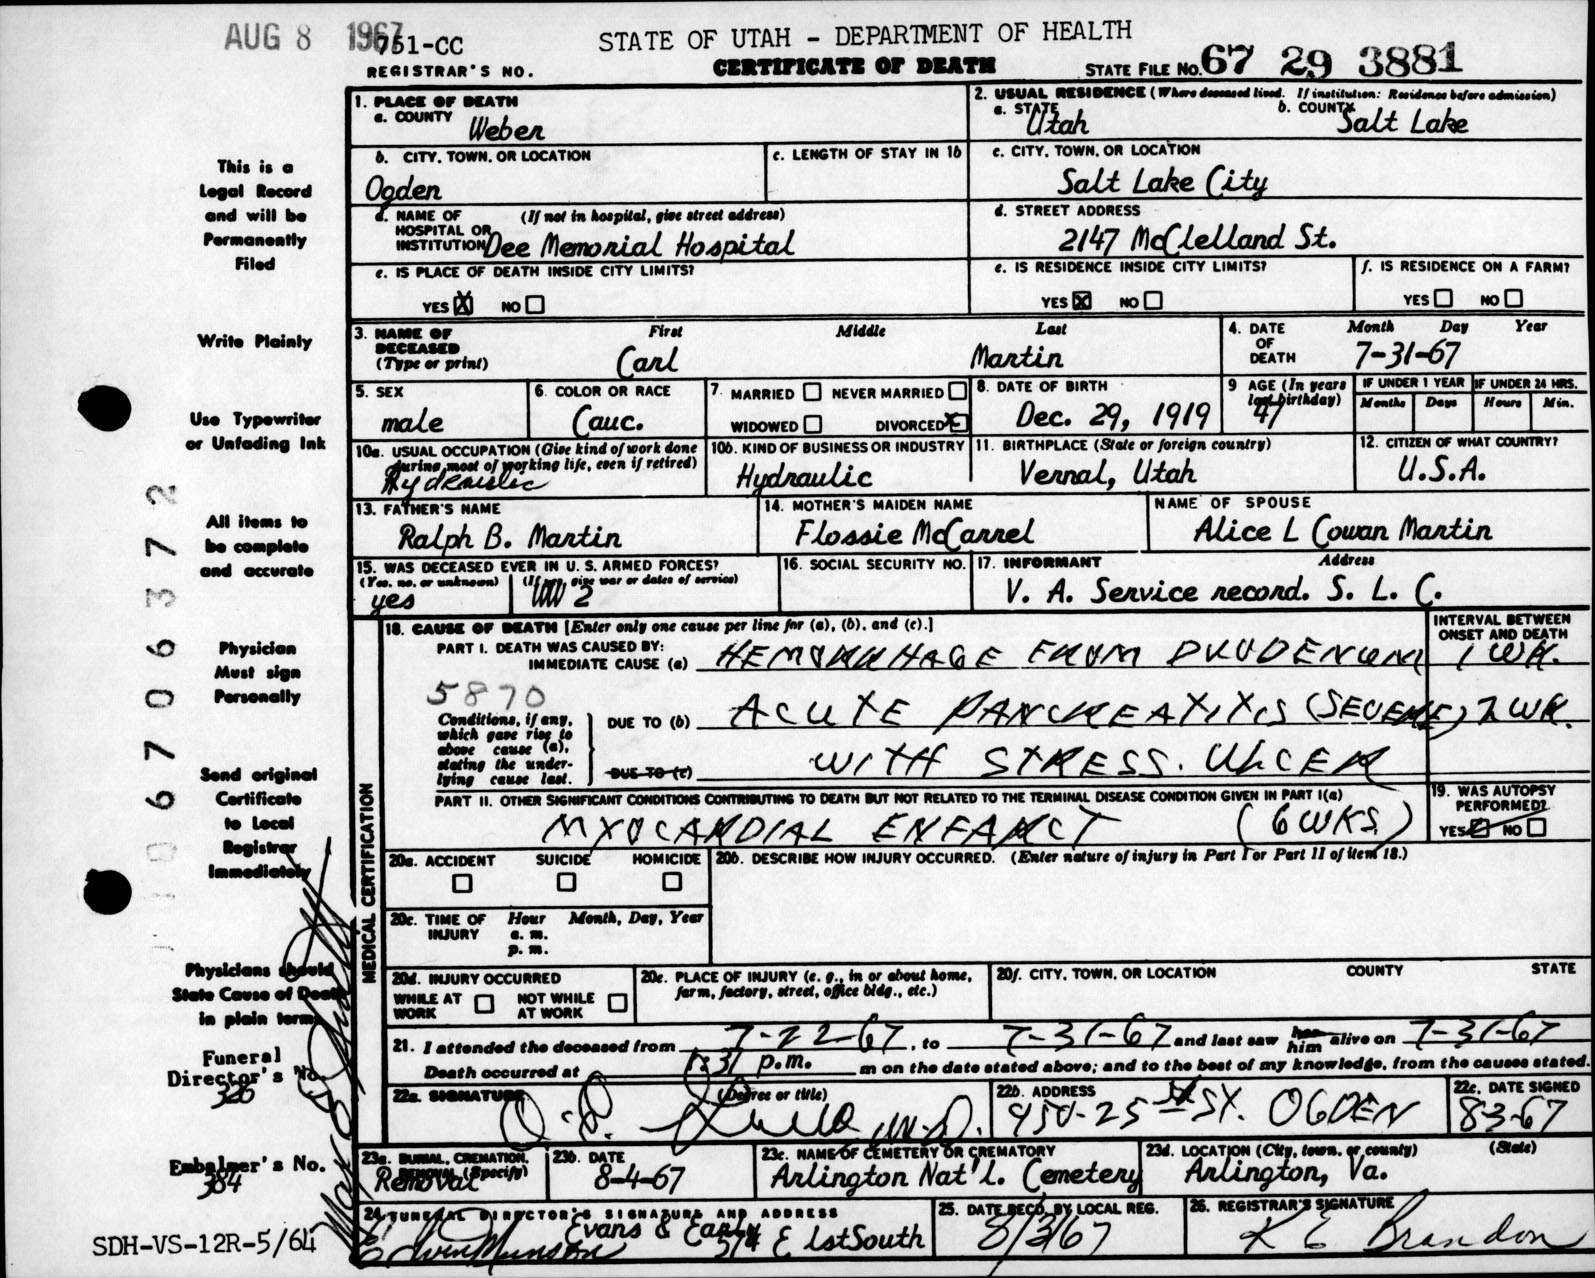 AUG 8 1967
751-CC
REGISTRAR'S NO.
STATE OF UTAH - DEPARTMENT OF HEALTH
CERTIFICATE OF DEATH
STATE FILE NO. 67 29 3881
This is a
Legal Record
and will be
Permanently
Filed
Write Plainly
Use Typewriter
or Unfading Ink
All items to
be complete
and accurate
Physician
Must sign
Personally
Send original
Certificate
to Local
Registrar
Immediately
Physicians should
State Cause of Death
in plain terms
Funeral
Director's No.
326
Embalmer's No.
384
SDH-VS-12R-5/64
1. PLACE OF DEATH
a. COUNTY Weber
2. USUAL RESIDENCE (Where deceased lived. If institution: Residence before admission)
a. STATE Utah b. COUNTY Salt Lake
b. CITY, TOWN, OR LOCATION
Ogden
c. LENGTH OF STAY IN 1b
c. CITY, TOWN, OR LOCATION
Salt Lake City
d. NAME OF HOSPITAL OR INSTITUTION (If not in hospital, give street address)
Dee Memorial Hospital
d. STREET ADDRESS
2147 McClelland St.
e. IS PLACE OF DEATH INSIDE CITY LIMITS?
YES X NO
e. IS RESIDENCE INSIDE CITY LIMITS?
YES X NO
f. IS RESIDENCE ON A FARM?
YES NO
3. NAME OF DECEASED (Type or print) First Middle Last
Carl Martin
4. DATE OF DEATH Month Day Year
7-31-67
5. SEX
male
6. COLOR OR RACE
Cauc.
7. MARRIED NEVER MARRIED
WIDOWED DIVORCED X
8. DATE OF BIRTH
Dec. 29, 1919
9 AGE (In years last birthday)
47
IF UNDER 1 YEAR IF UNDER 24 HRS.
Months Days Hours Min.
10a. USUAL OCCUPATION (Give kind of work done during most of working life, even if retired)
Hydraulic
10b. KIND OF BUSINESS OR INDUSTRY
Hydraulic
11. BIRTHPLACE (State or foreign country)
Vernal, Utah
12. CITIZEN OF WHAT COUNTRY?
U.S.A.
13. FATHER'S NAME
Ralph B. Martin
14. MOTHER'S MAIDEN NAME
Flossie McCarrel
NAME OF SPOUSE
Alice L Cowan Martin
15. WAS DECEASED EVER IN U. S. ARMED FORCES?
(Yes, no, or unknown) (If yes, give war or dates of service)
yes WW 2
16. SOCIAL SECURITY NO.
17. INFORMANT Address
V. A. Service record. S. L. C.
MEDICAL CERTIFICATION
18. CAUSE OF DEATH [Enter only one cause per line for (a), (b), and (c).]
INTERVAL BETWEEN ONSET AND DEATH
PART I. DEATH WAS CAUSED BY:
IMMEDIATE CAUSE (a) HEMORRHAGE FROM DUODENUM 1 WK.
5870
Conditions, if any, which gave rise to above cause (a), stating the underlying cause last.
DUE TO (b) ACUTE PANCREATITIS (SEVERE) 2 WK.
DUE TO (c) WITH STRESS. ULCER
PART II. OTHER SIGNIFICANT CONDITIONS CONTRIBUTING TO DEATH BUT NOT RELATED TO THE TERMINAL DISEASE CONDITION GIVEN IN PART I(a)
MYOCARDIAL ENFARCT (6 WKS)
19. WAS AUTOPSY PERFORMED?
YES NO
20a. ACCIDENT SUICIDE HOMICIDE
20b. DESCRIBE HOW INJURY OCCURRED. (Enter nature of injury in Part I or Part II of item 18.)
20c. TIME OF INJURY Hour Month, Day, Year
a. m.
p. m.
20d. INJURY OCCURRED
WHILE AT WORK NOT WHILE AT WORK
20e. PLACE OF INJURY (e. g., in or about home, farm, factory, street, office bldg., etc.)
20f. CITY, TOWN, OR LOCATION COUNTY STATE
21. I attended the deceased from 7-22-67, to 7-31-67 and last saw her him alive on 7-31-67
Death occurred at 1:31 p.m. m on the date stated above; and to the best of my knowledge, from the causes stated.
22a. SIGNATURE (Degree or title)
M.D.
22b. ADDRESS
950-25th ST. OGDEN
22c. DATE SIGNED
8-3-67
23a. BURIAL, CREMATION, REMOVAL (Specify)
Removal
23b. DATE
8-4-67
23c. NAME OF CEMETERY OR CREMATORY
Arlington Nat'l. Cemetery
23d. LOCATION (City, town, or county) (State)
Arlington, Va.
24. FUNERAL DIRECTOR'S SIGNATURE AND ADDRESS
Evans & Early
574 E 1st South
Edwin Munson
25. DATE REC'D. BY LOCAL REG.
8/3/67
26. REGISTRAR'S SIGNATURE
K E Brandon
106706372